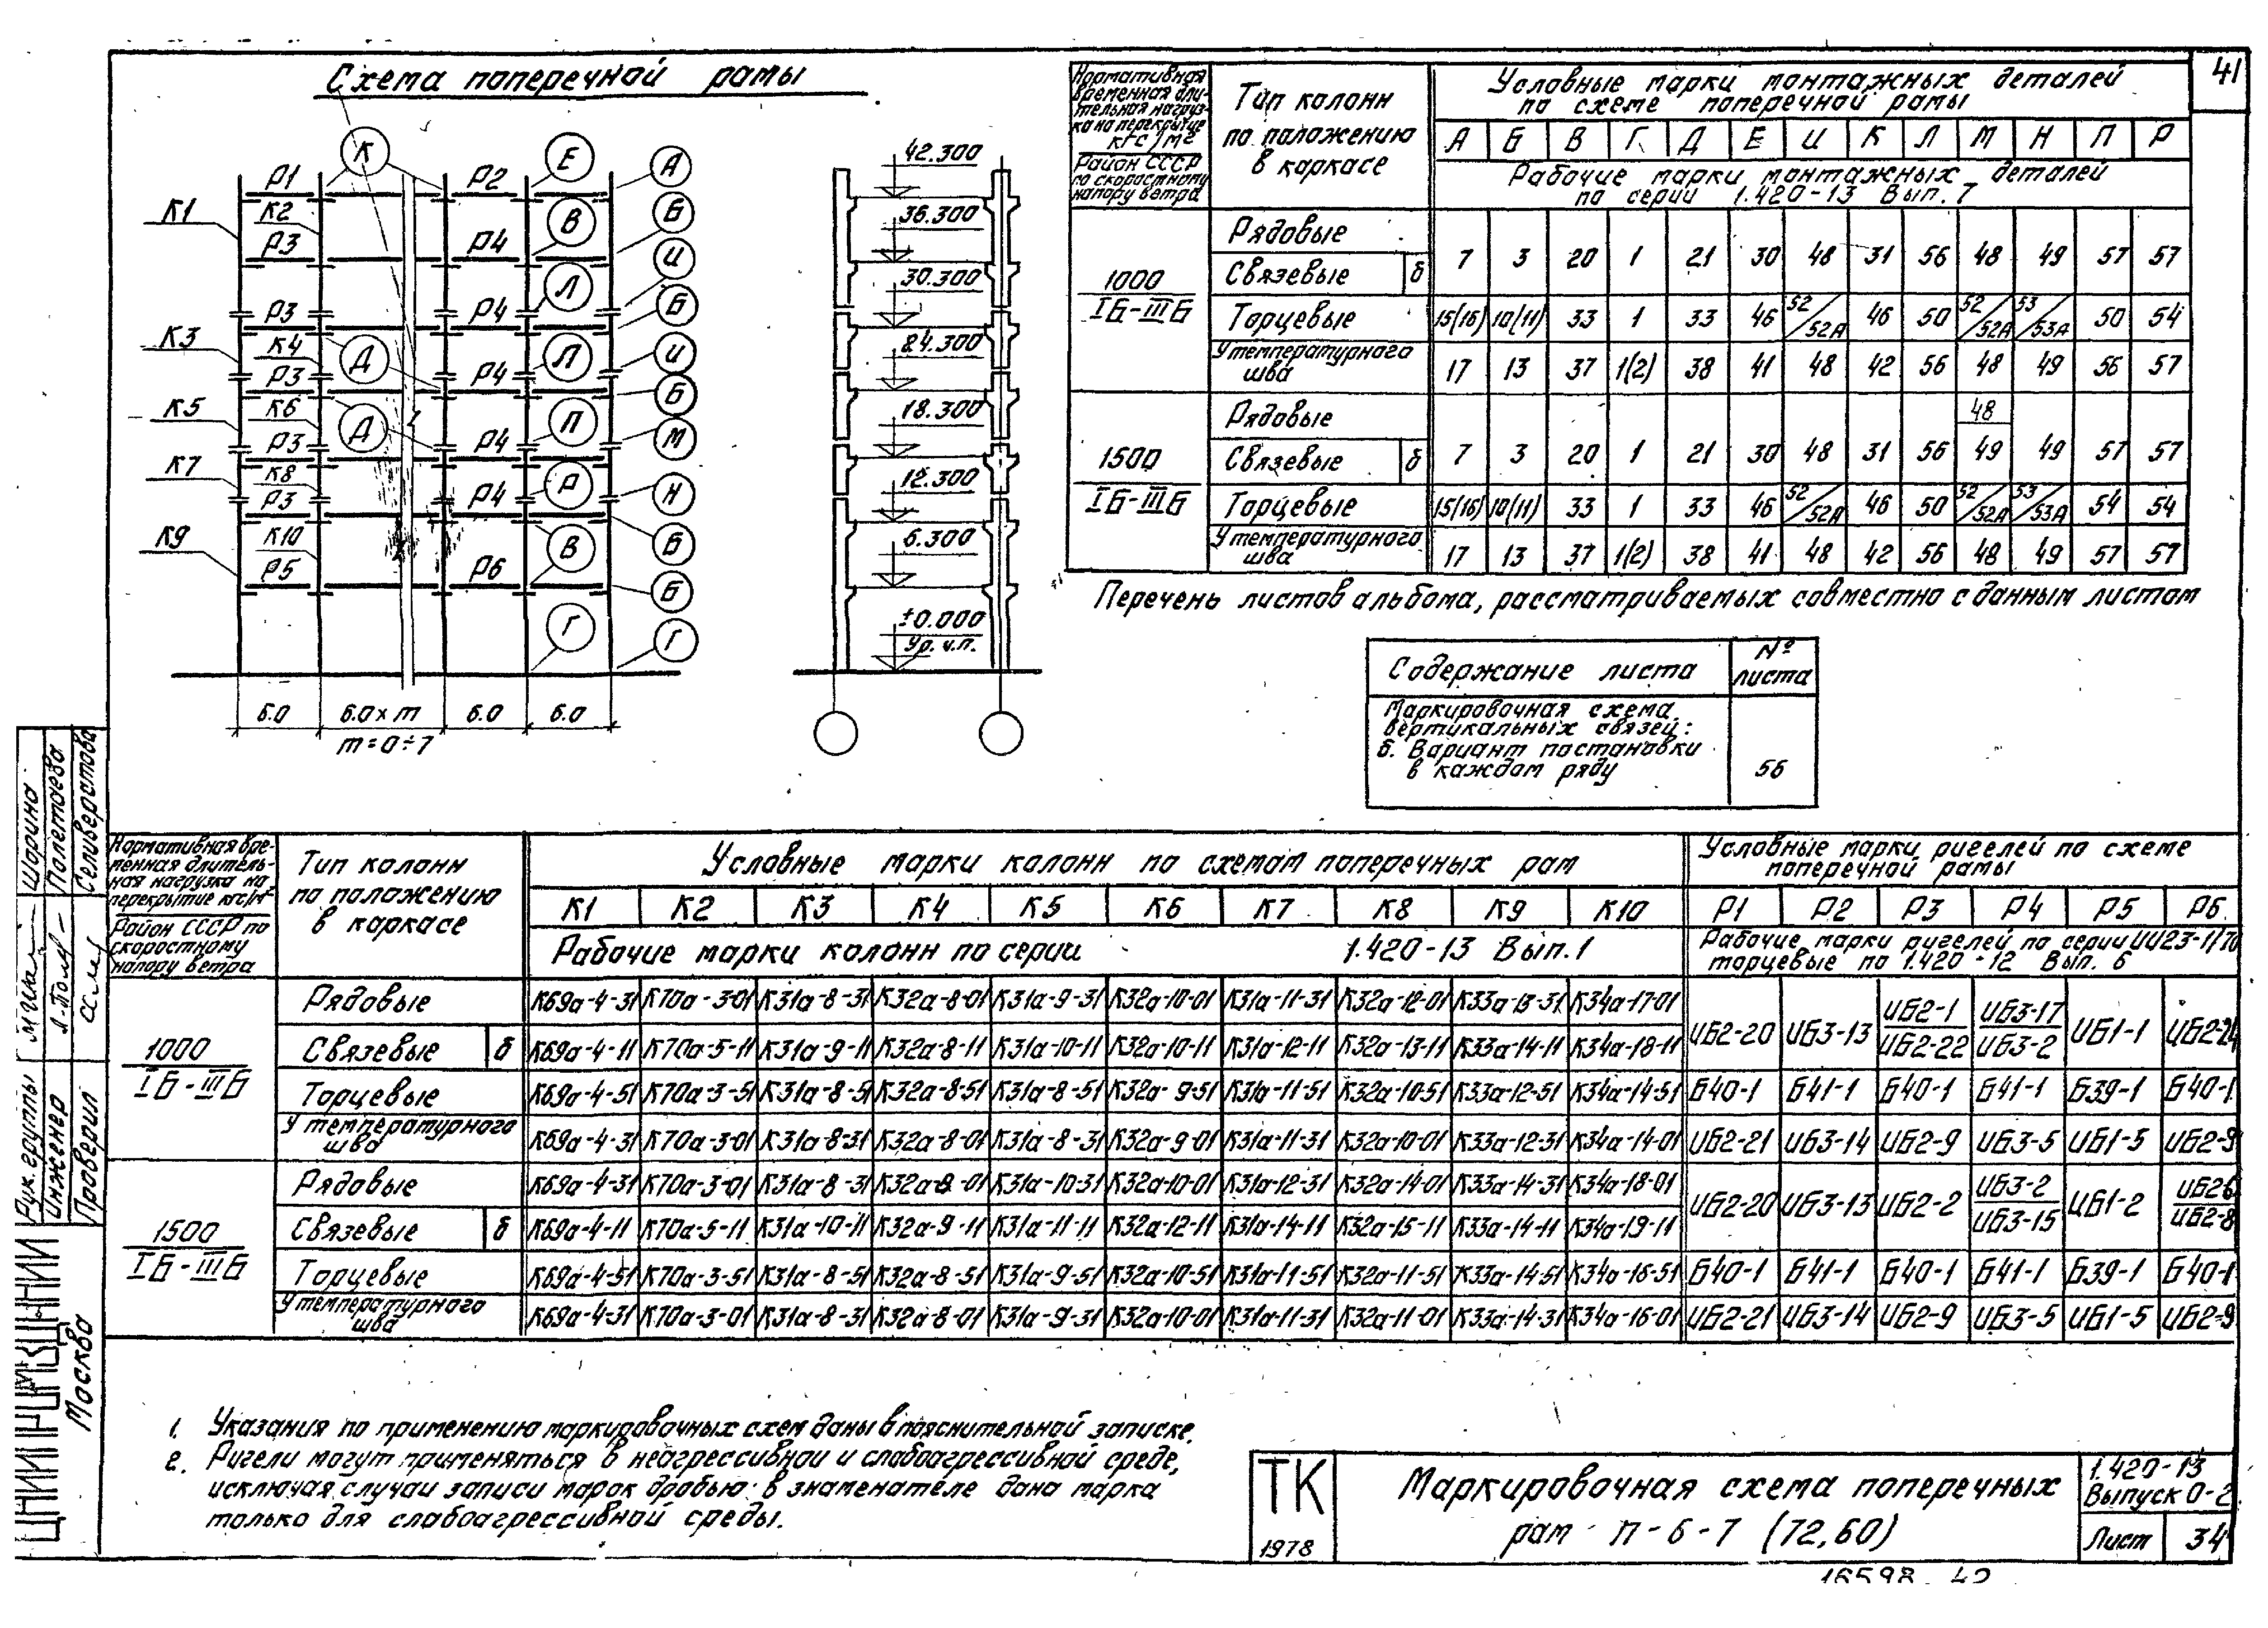 41
Схема поперечной рамы
К Е А
Р1 Р2
К1 К2 В Б
Р3 Р4 И
Л
Р3 Р4 Б
К3 К4 Д Л И
Р3 Р4 Б
К5 К6 Д П М
Р3 Р4
К7 К8 Р Н
Р3 Р4
К9 К10 В Б
Р5 Р6 Б
Г Г
6.0 6.0×m 6.0 6.0
m=0÷7
42.300
36.300
30.300
24.300
18.300
12.300
6.300
±0.000
Ур. ч.п.
Нормативная временная длительная нагрузка на перекрытие кгс/м²
Район СССР по скоростному напору ветра
Тип колонн по положению в каркасе
Условные марки монтажных деталей
по схеме поперечной рамы
А Б В Г Д Е И К Л М Н П Р
Рабочие марки монтажных деталей
по серии 1.420-13 Вып. 7
1000
IБ-IIIБ
Рядовые
Связевые б
7 3 20 1 21 30 48 31 56 48 49 57 57
Торцевые 15(16) 10(11) 33 1 33 46 52/52А 46 50 52/52А 53/53А 50 54
У температурного шва 17 13 37 1(2) 38 41 48 42 56 48 49 56 57
1500
IБ-IIIБ
Рядовые
Связевые б
7 3 20 1 21 30 48 31 56 48/49 49 57 57
Торцевые 15(16) 10(11) 33 1 33 46 52/52А 46 50 52/52А 53/53А 54 54
У температурного шва 17 13 37 1(2) 38 41 48 42 56 48 49 57 57
Перечень листов альбома, рассматриваемых совместно с данным листом
Содержание листа № листа
Маркировочная схема
вертикальных связей:
б. Вариант постановки
в каждом ряду 56
Нормативная временная длительная нагрузка на перекрытие кгс/м²
Район СССР по скоростному напору ветра
Тип колонн по положению в каркасе
Условные марки колонн по схемам поперечных рам
Условные марки ригелей по схеме
поперечной рамы
К1 К2 К3 К4 К5 К6 К7 К8 К9 К10 Р1 Р2 Р3 Р4 Р5 Р6
Рабочие марки колонн по серии 1.420-13 Вып.1
Рабочие марки ригелей по серии ИИ23-1/70
торцевые по 1.420-12 Вып. 6
1000
IБ-IIIБ
Рядовые К69а-4-31 К70а-3-01 К31а-8-31 К32а-8-01 К31а-9-31 К32а-10-01 К31а-11-31 К32а-12-01 К33а-13-31 К34а-17-01
Связевые б К69а-4-11 К70а-5-11 К31а-9-11 К32а-8-11 К31а-10-11 К32а-10-11 К31а-12-11 К32а-13-11 К33а-14-11 К34а-18-11
ИБ2-20 ИБ3-13 ИБ2-1/ИБ2-22 ИБ3-17/ИБ3-2 ИБ1-1 ИБ2-24
Торцевые К69а-4-51 К70а-3-51 К31а-8-51 К32а-8-51 К31а-8-51 К32а-9-51 К31а-11-51 К32а-10-51 К33а-12-51 К34а-14-51 Б40-1 Б41-1 Б40-1 Б41-1 Б39-1 Б40-1
У температурного шва К69а-4-31 К70а-3-01 К31а-8-31 К32а-8-01 К31а-8-31 К32а-9-01 К31а-11-31 К32а-10-01 К33а-12-31 К34а-14-01 ИБ2-21 ИБ3-14 ИБ2-9 ИБ3-5 ИБ1-5 ИБ2-9
1500
IБ-IIIБ
Рядовые К69а-4-31 К70а-3-01 К31а-8-31 К32а-8-01 К31а-10-31 К32а-10-01 К31а-12-31 К32а-14-01 К33а-14-31 К34а-18-01
Связевые б К69а-4-11 К70а-5-11 К31а-10-11 К32а-9-11 К31а-11-11 К32а-12-11 К31а-14-11 К32а-15-11 К33а-14-11 К34а-19-11
ИБ2-20 ИБ3-13 ИБ2-2 ИБ3-2/ИБ3-15 ИБ1-2 ИБ2-6/ИБ2-8
Торцевые К69а-4-51 К70а-3-51 К31а-8-51 К32а-8-51 К31а-9-51 К32а-10-51 К31а-11-51 К32а-11-51 К33а-14-51 К34а-16-51 Б40-1 Б41-1 Б40-1 Б41-1 Б39-1 Б40-1
У температурного шва К69а-4-31 К70а-3-01 К31а-8-31 К32а-8-01 К31а-9-31 К32а-10-01 К31а-11-31 К32а-11-01 К33а-14-31 К34а-16-01 ИБ2-21 ИБ3-14 ИБ2-9 ИБ3-5 ИБ1-5 ИБ2-9
1. Указания по применению маркировочных схем даны в пояснительной записке.
2. Ригели могут применяться в неагрессивной и слабоагрессивной среде,
исключая случаи записи марок дробью: в знаменателе дана марка
только для слабоагрессивной среды.
ТК
1978
Маркировочная схема поперечных
рам п-6-7 (72,60)
1.420-13
Выпуск 0-2
Лист 34
16598 42
Рук. группы Шорина
Инженер Полетаева
Проверил Селиверстова
ЦНИИПРОМЗДАНИЙ
Москва